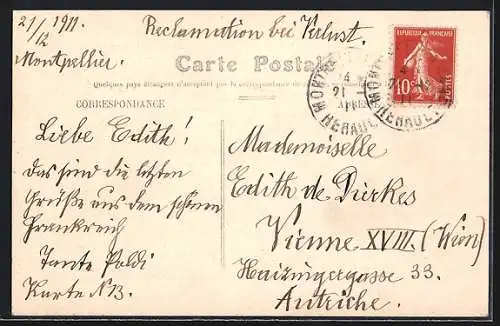 21/12 1911. Reclamation bei Verlust.
Montpellier
REPUBLIQUE FRANÇAISE
10c POSTES
Carte Postale
Quelques pays étrangers n'acceptent pas la correspondance de
CORRESPONDANCE
MONTP
HERAULT
21
Liebe Edith!
Das sind die letzten
Grüße aus dem schönen
Frankreich
Tante Poldi
Karte N 13.
Mademoiselle
Edith de Dierkes
Vienne XVIII (Wien)
Haizingergasse 33.
Autriche.